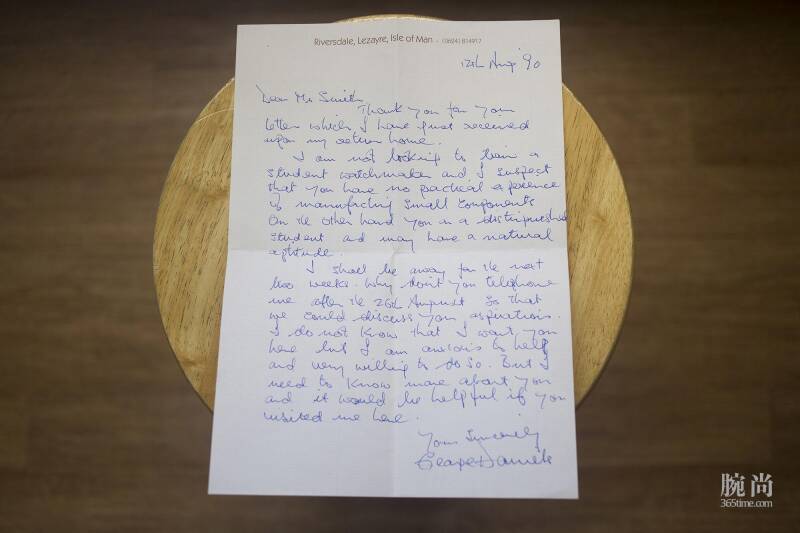 Riversdale, Lezayre, Isle of Man · (0624) 814917
12th Aug' 90
Dear Mr Smith,
Thank you for your
letter which I have just received
upon my return home.
I am not looking to train a
student watchmaker and, I suspect
that you have no practical experience
of manufacturing small components
On the other hand you are a distinguished
student and may have a natural
aptitude.
I shall be away for the next
two weeks. Why don't you telephone
me after the 26th August so that
we could discuss your aspirations.
I do not know that I want you
here but I am anxious to help
and very willing to do so. But I
need to know more about you
and it would be helpful if you
visited me here.
Yours Sincerely
George Daniels
腕尚
365time.com